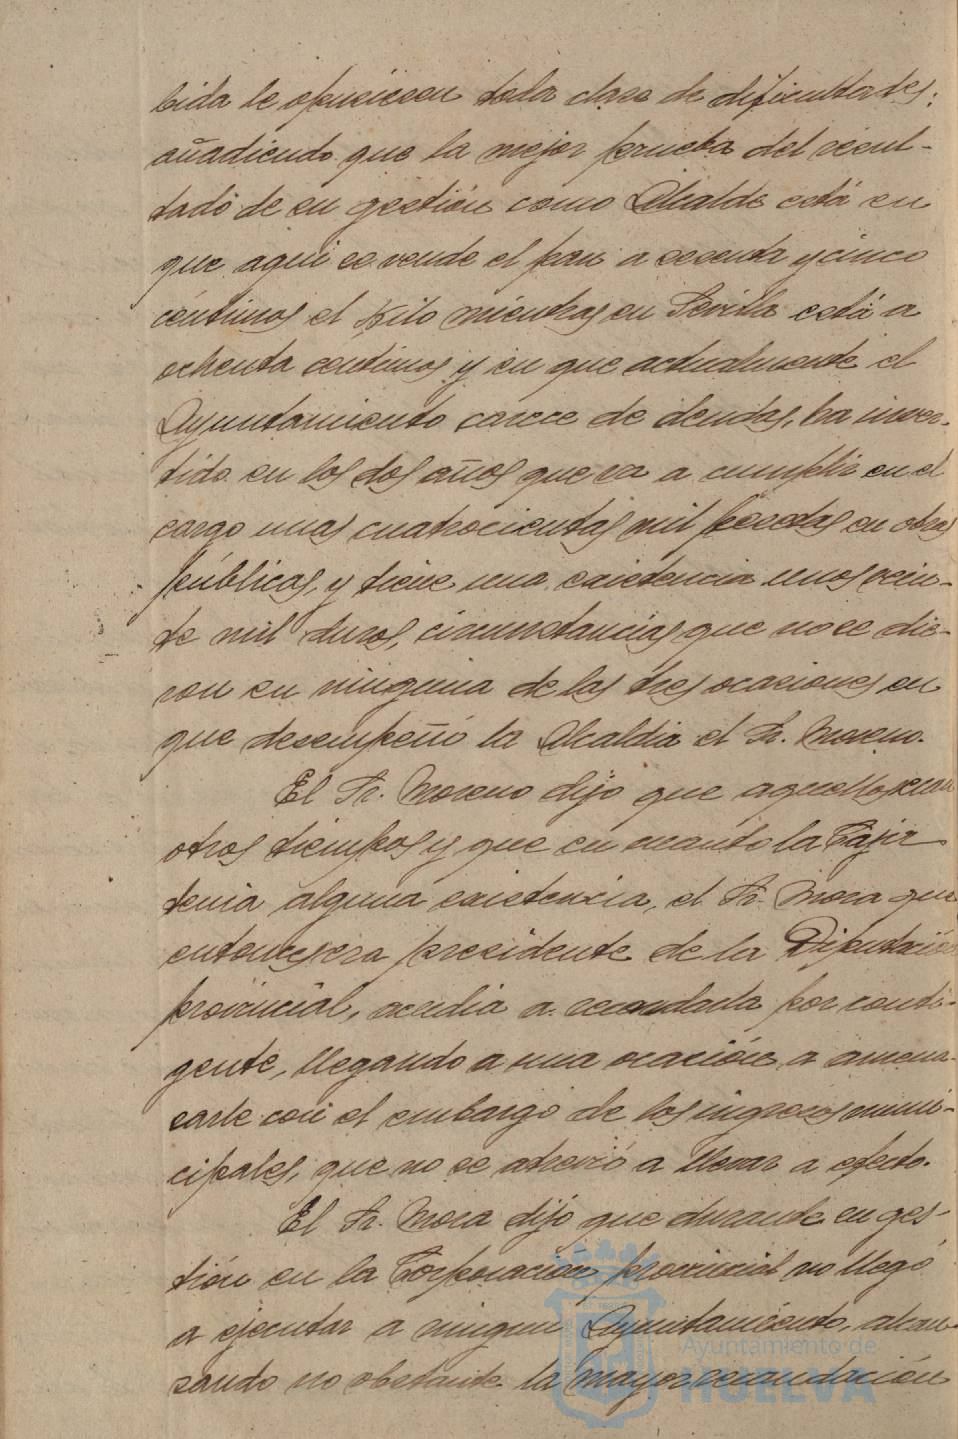 bida le opusiesen toda clase de dificultades;
añadiendo que la mejor prueba del resul-
tado de su gestión como Alcalde está en
que aqui se vende el pan a sesenta y cinco
céntimos el Kilo mientras en Sevilla está a
ochenta centimos y en que actualmente el
Ayuntamiento carece de deudas, ha inver-
tido en los dos años que va a cumplir en el
cargo unas cuatrocientas mil pesetas en obras
públicas, y tiene una existencia unos vein-
te mil duros, circunstancias que no se die-
ron en ninguna de las tres ocasiones en
que desempeñó la Alcaldia el Sr. Moreno.
El Sr. Moreno dijo que aquellos eran
otros tiempos y que en cuanto la Caja
tenia alguna existencia, el Sr. Mora que
entonces era presidente de la Diputación
provincial, acudia a recaudarla por conti-
gente, llegando a una ocasión a amena-
zarle con el embargo de los ingresos muni-
cipales, que no se atrevió a llevar a efecto.
El Sr. Mora dijo que durante su ges-
tión en la Corporación provincial no llegó
a ejecutar a ningun Ayuntamiento, alcan-
zando no obstante la mayor recaudación
Ayuntamiento de
HUELVA